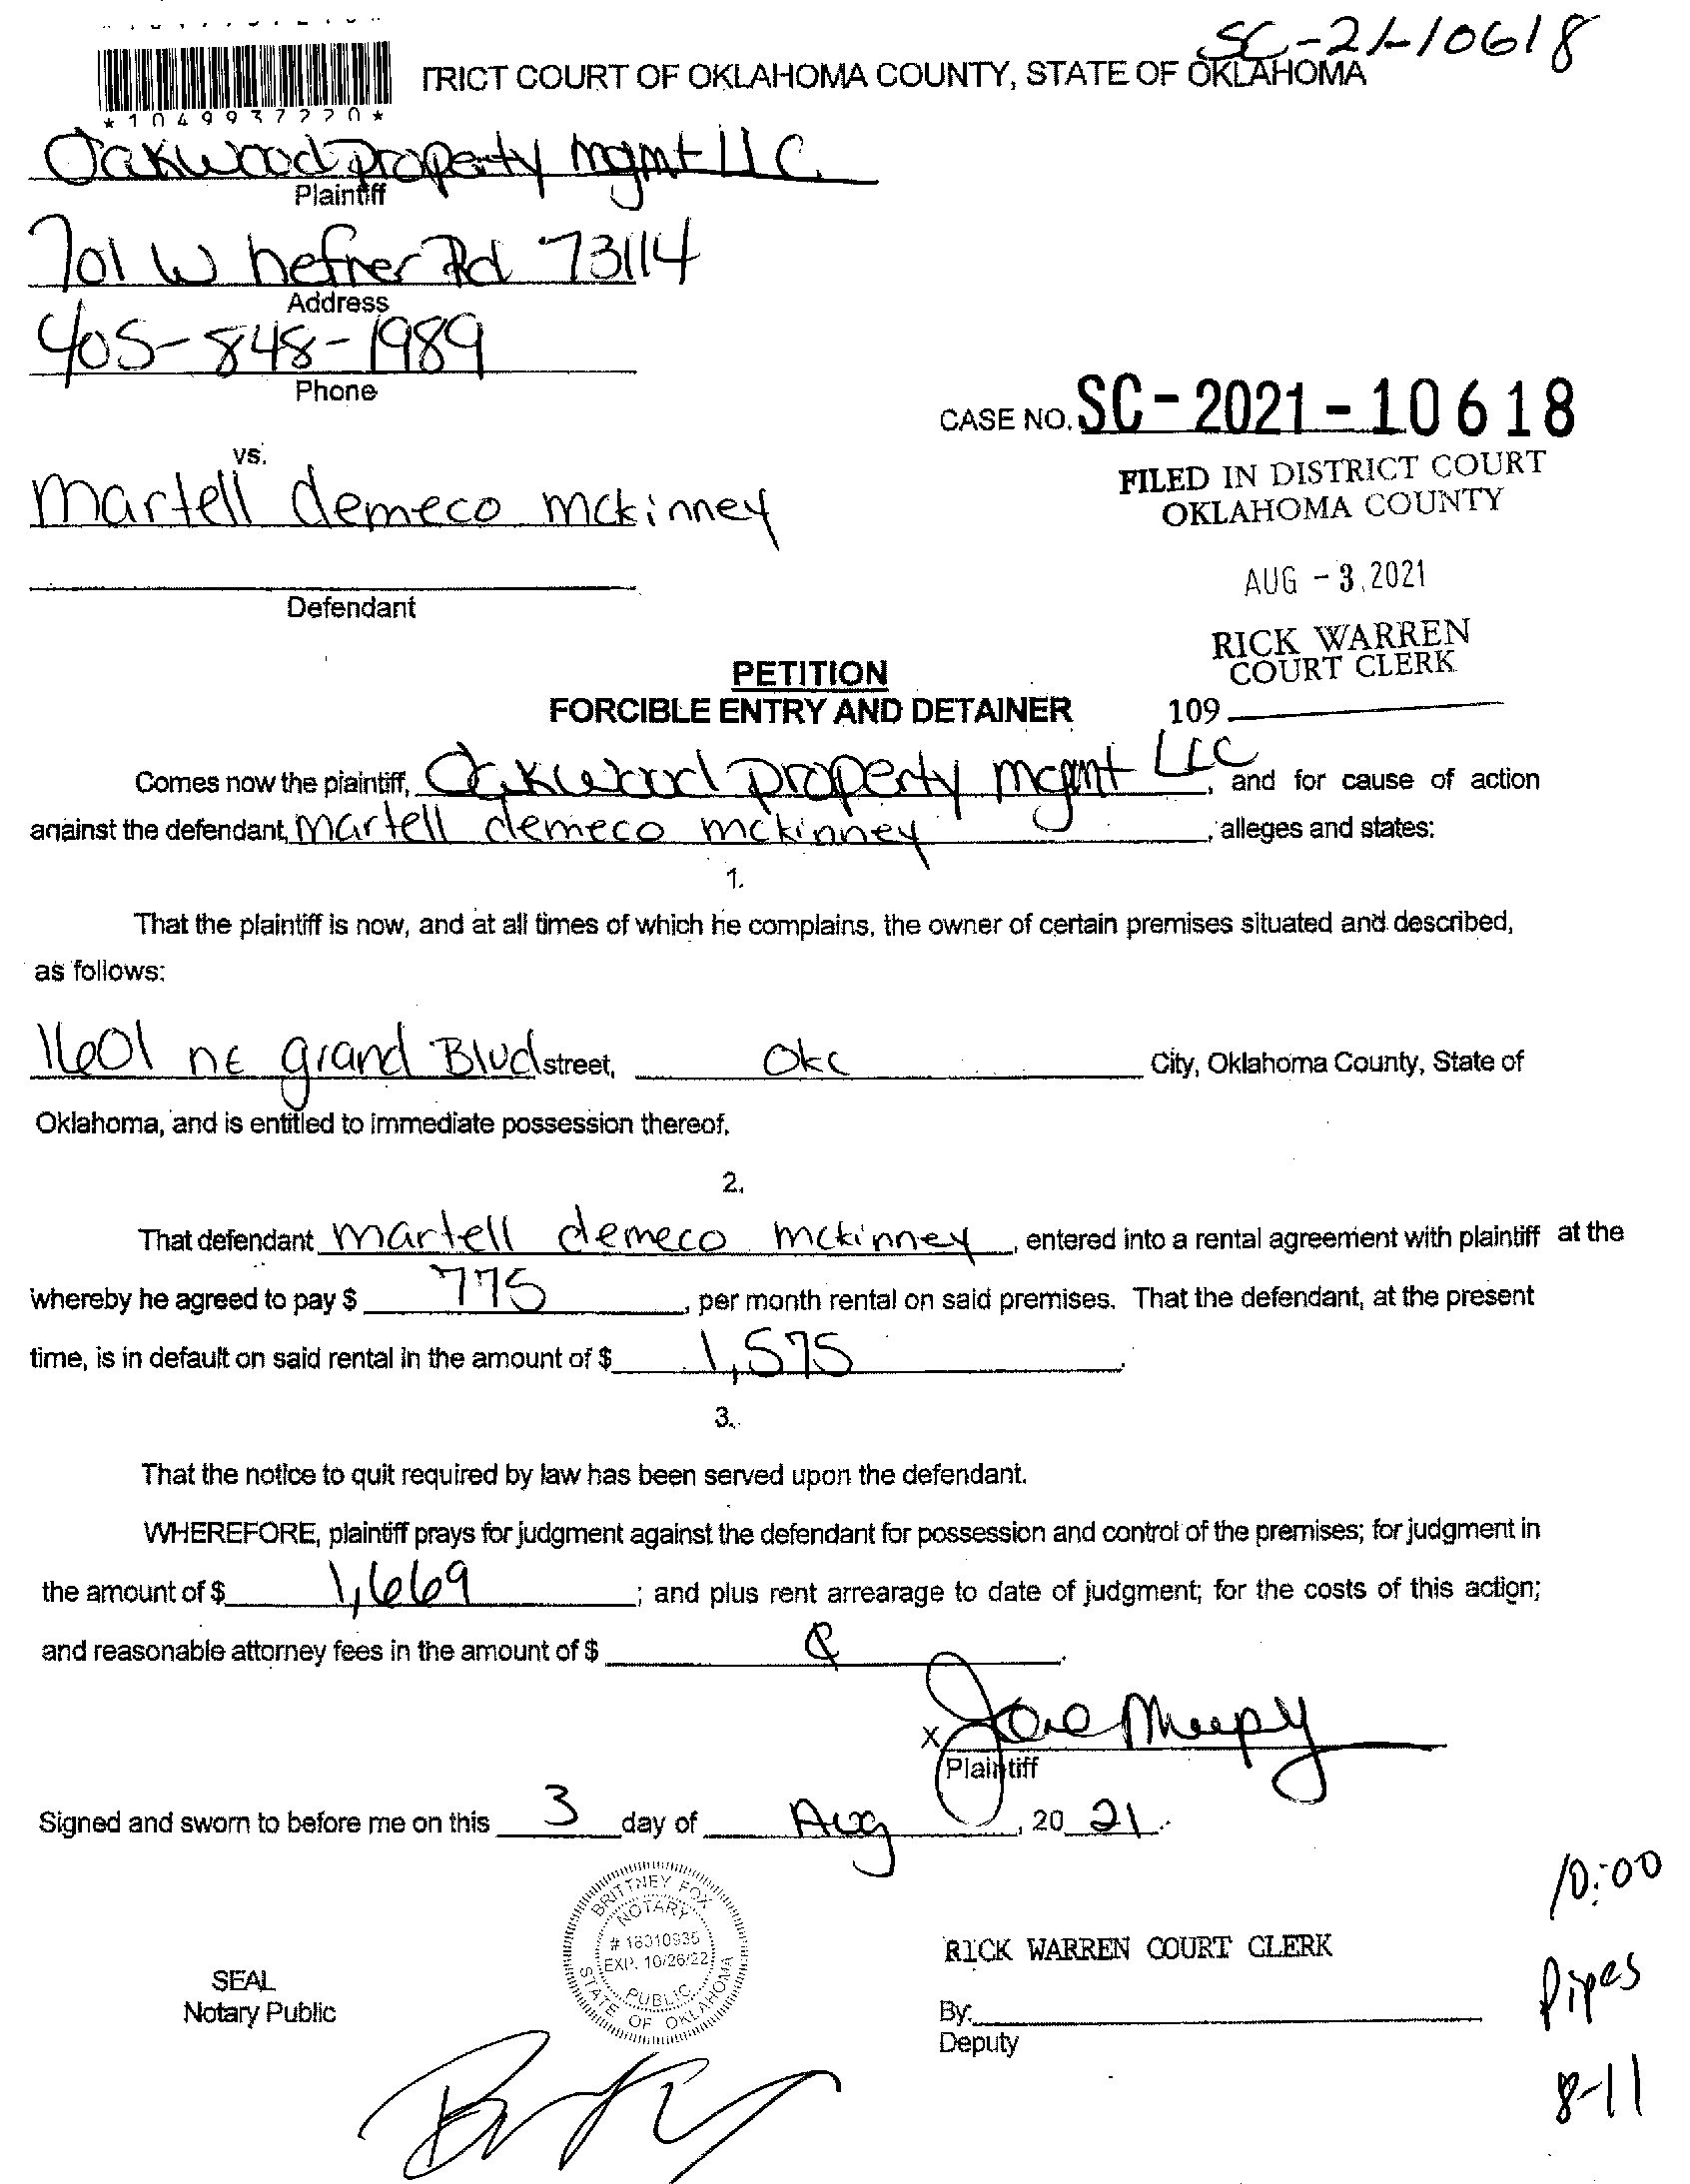 SC-21-10618
TRICT COURT OF OKLAHOMA COUNTY, STATE OF OKLAHOMA
*1049937220*
Oakwood property mgmt LLC
Plaintiff
701 W hefner Rd 73114
Address
405-848-1989
Phone
CASE NO. SC-2021-10618
vs.
martell demeco mckinney
FILED IN DISTRICT COURT
OKLAHOMA COUNTY
AUG -3 2021
Defendant
RICK WARREN
COURT CLERK
PETITION
FORCIBLE ENTRY AND DETAINER
109
Comes now the plaintiff, Oakwood property mgmt LLC, and for cause of action
against the defendant, martell demeco mckinney, alleges and states:
1.
That the plaintiff is now, and at all times of which he complains, the owner of certain premises situated and described,
as follows:
1601 ne grand Blvd street, Okc City, Oklahoma County, State of
Oklahoma, and is entitled to immediate possession thereof.
2.
That defendant martell demeco mckinney, entered into a rental agreement with plaintiff at the
whereby he agreed to pay $ 775, per month rental on said premises. That the defendant, at the present
time, is in default on said rental in the amount of $ 1,575.
3.
That the notice to quit required by law has been served upon the defendant.
WHEREFORE, plaintiff prays for judgment against the defendant for possession and control of the premises; for judgment in
the amount of $ 1,669; and plus rent arrearage to date of judgment; for the costs of this action;
and reasonable attorney fees in the amount of $
X
Plaintiff
Signed and sworn to before me on this 3 day of Aug, 20 21.
10:00
BRITTNEY FOX
NOTARY
# 18010935
EXP. 10/26/22
PUBLIC
STATE OF OKLAHOMA
RICK WARREN COURT CLERK
SEAL
Notary Public
Pipes
By:
Deputy
8-11